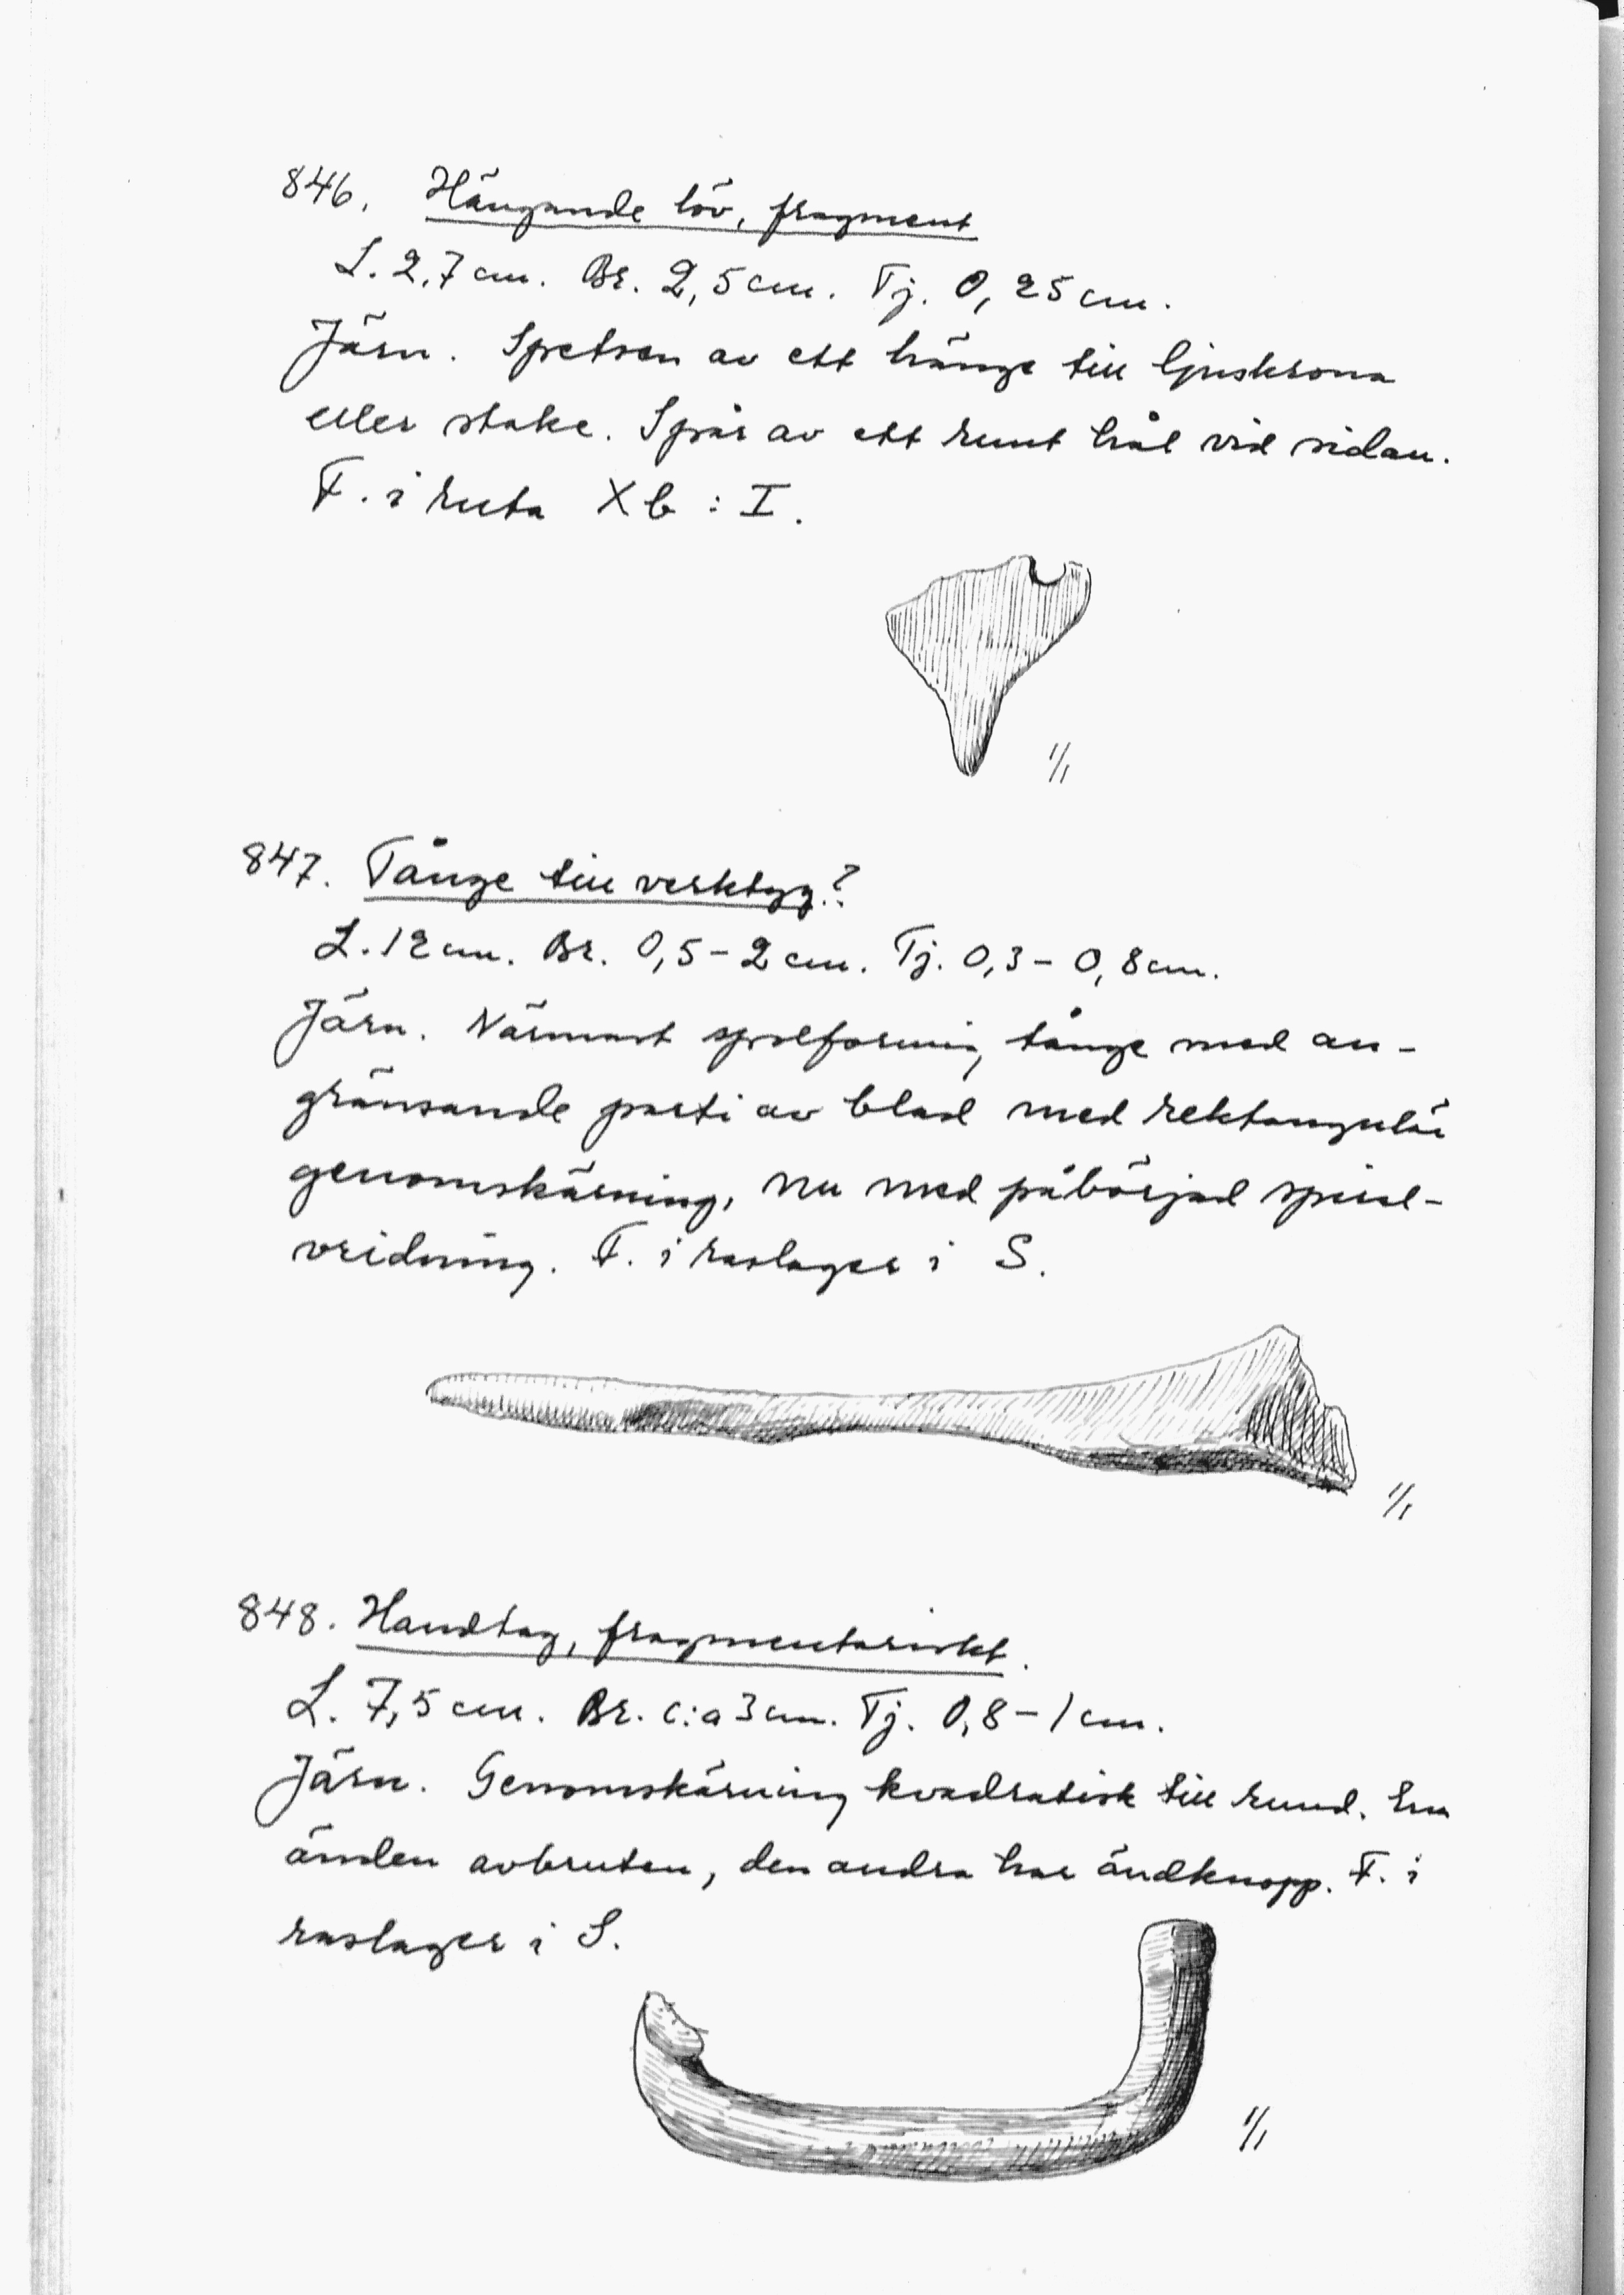 846. Hängande löv, fragment
L. 2,7 cm. Br. 2,5 cm. Tj. 0,25 cm.
Järn. Spetsen av ett hänge till ljuskrona
eller stake. Spår av ett runt hål vid sidan.
F. i ruta Xb : I.
1/1
847. Tånge till verktyg?
L. 12 cm. Br. 0,5 - 2 cm. Tj. 0,3 - 0,8 cm.
Järn. Närmast spolformig tånge med an-
gränsande parti av blad med rektangulär
genomskärning, nu med påbörjad spiral-
vridning. F. i raslager i S.
1/1
848. Handtag, fragmentariskt.
L. 7,5 cm. Br. c:a 3 cm. Tj. 0,8 - 1 cm.
Järn. Genomskärning kvadratisk till rund. Ena
änden avbruten, den andra har ändknopp. F. i
raslager i S.
1/1